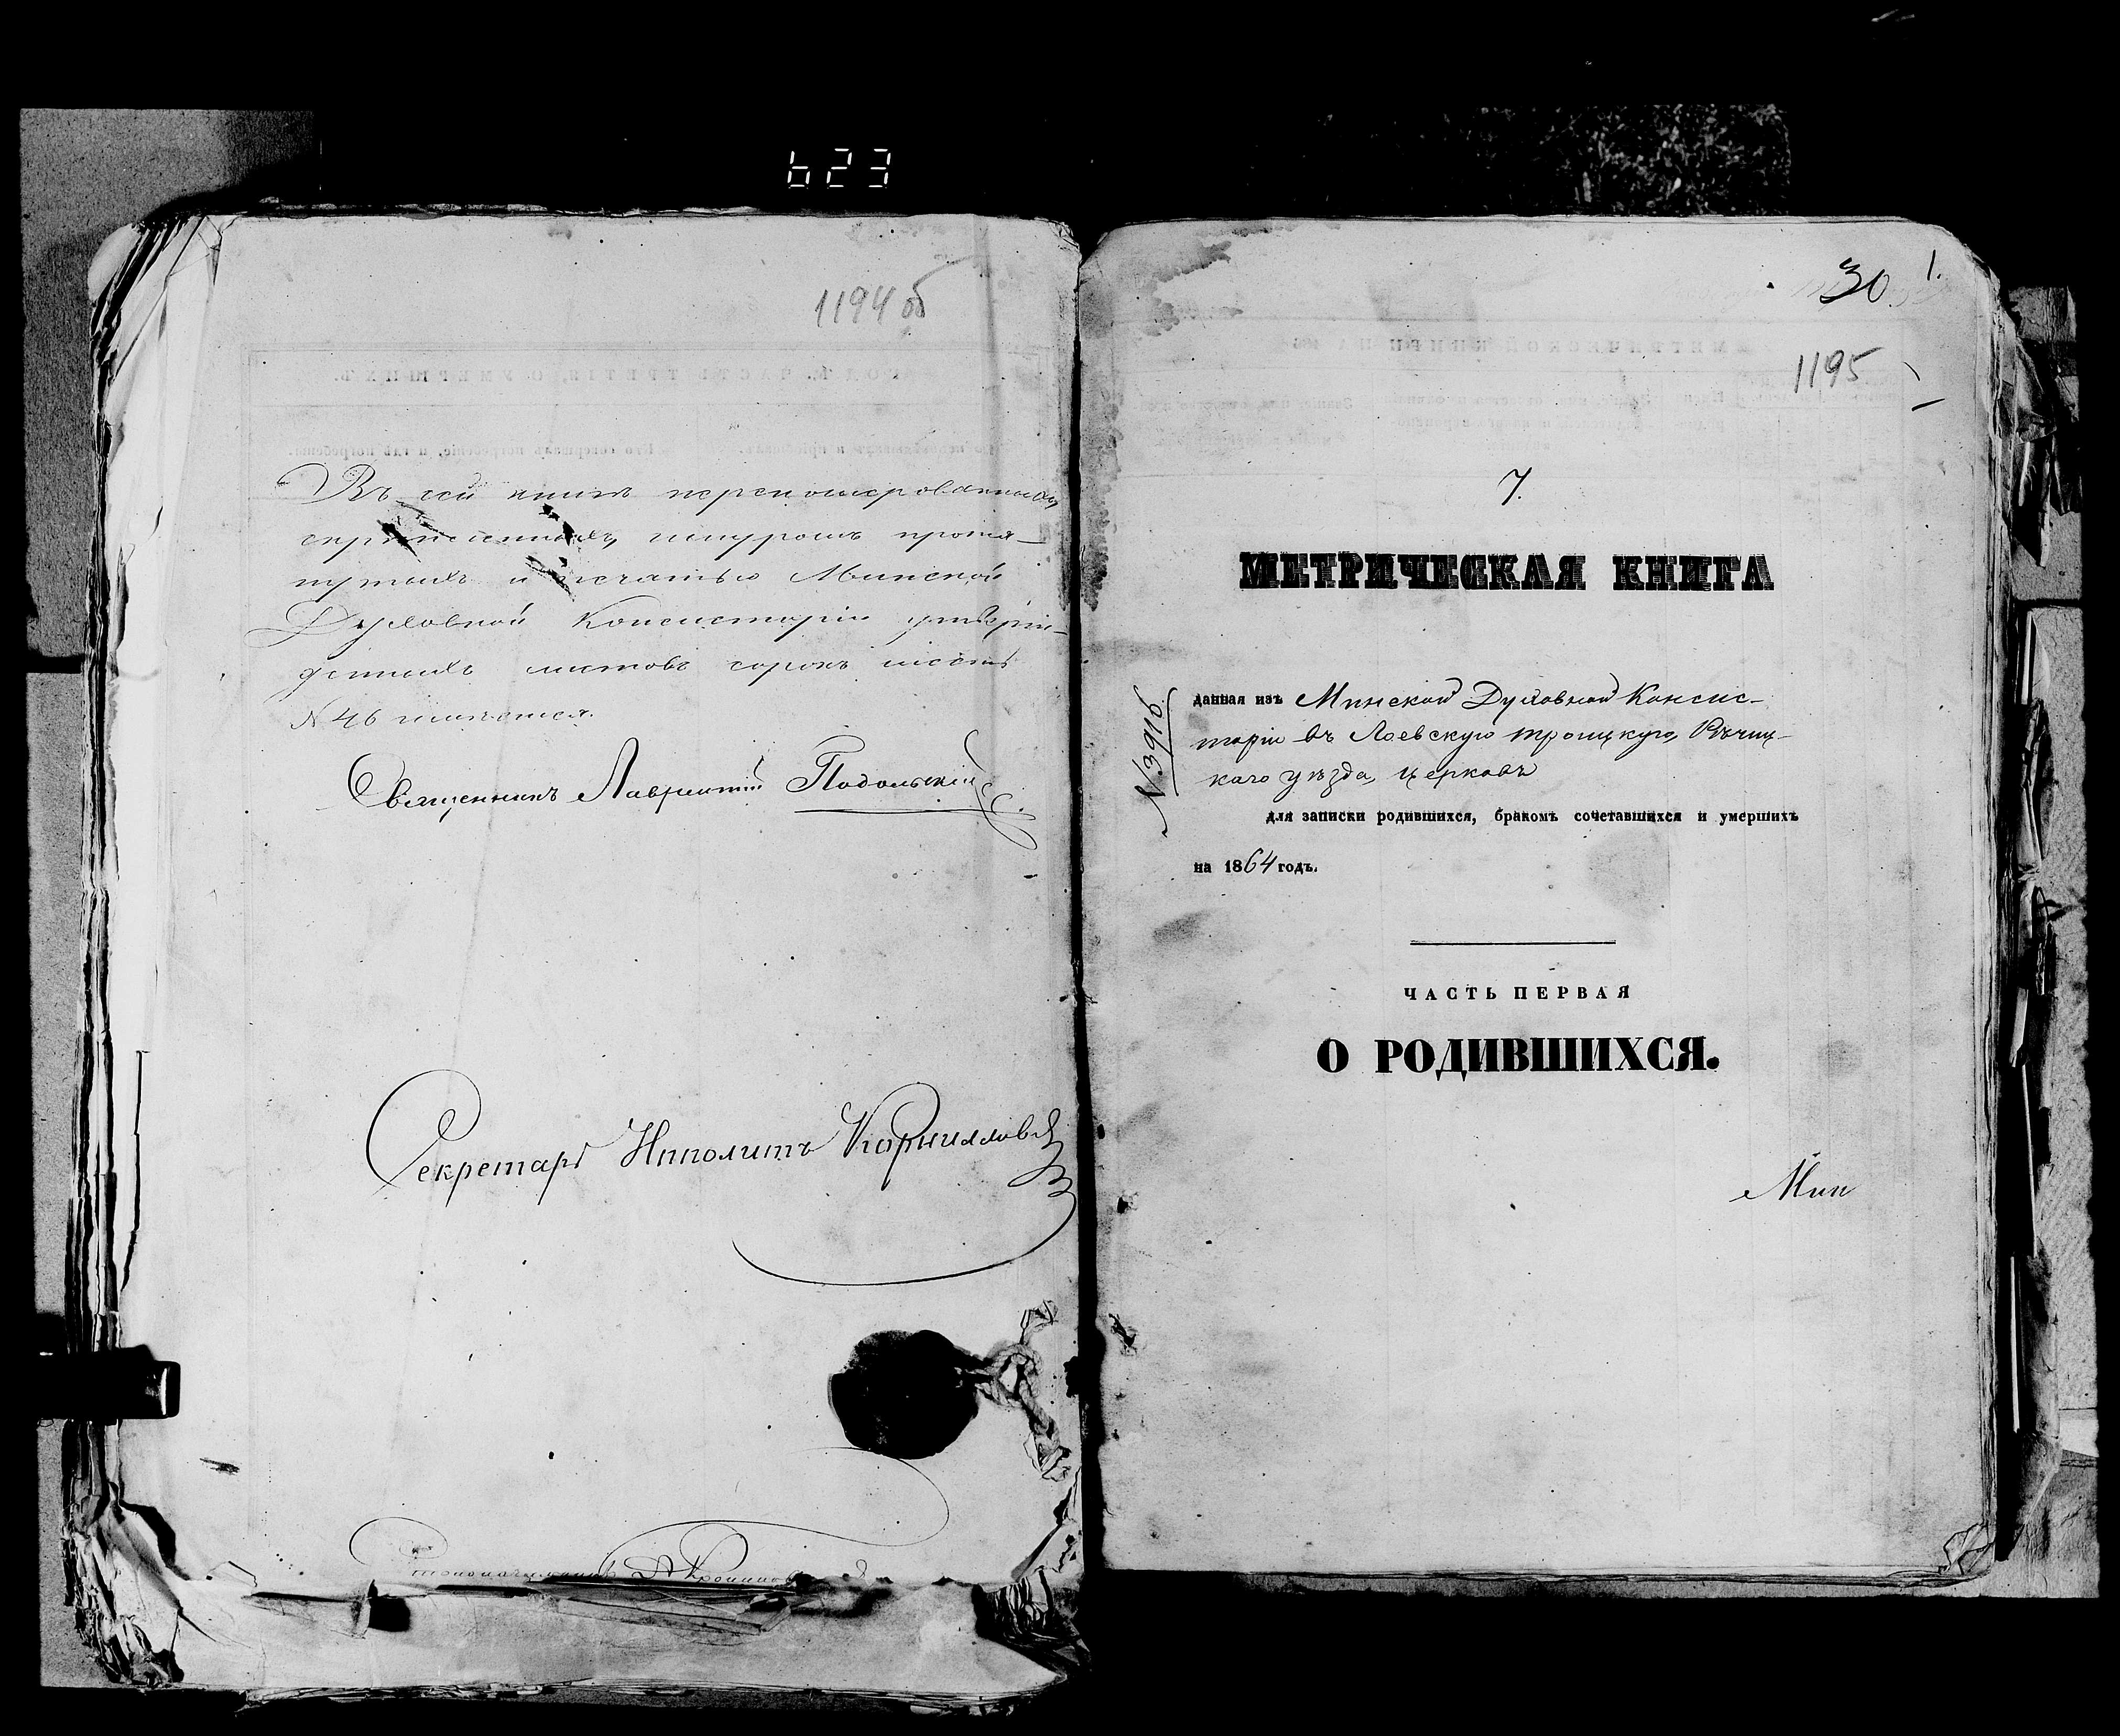 623
1194 об
Въ сей книгѣ перенумерованныхъ,
скрѣпленныхъ, шнуромъ протя-
нутыхъ и печатью Минской
Духовной Консисторіи утверж-
денныхъ листовъ сорокъ шесть
№ 46 имѣется.
Священникъ Лаврентій Подольскій
Секретарь Ипполитъ Корниловъ
Столоначальникъ
30. 1.
1195
7.
МЕТРИЧЕСКАЯ КНИГА
№ 3916
данная изъ Минской Духовной Консис-
торіи въ Лоевскую троицкую, Рѣчиц-
каго уѣзда, церковь
для записки родившихся, бракомъ сочетавшихся и умершихъ
на 1864 годъ.
ЧАСТЬ ПЕРВАЯ
О РОДИВШИХСЯ.
Мин